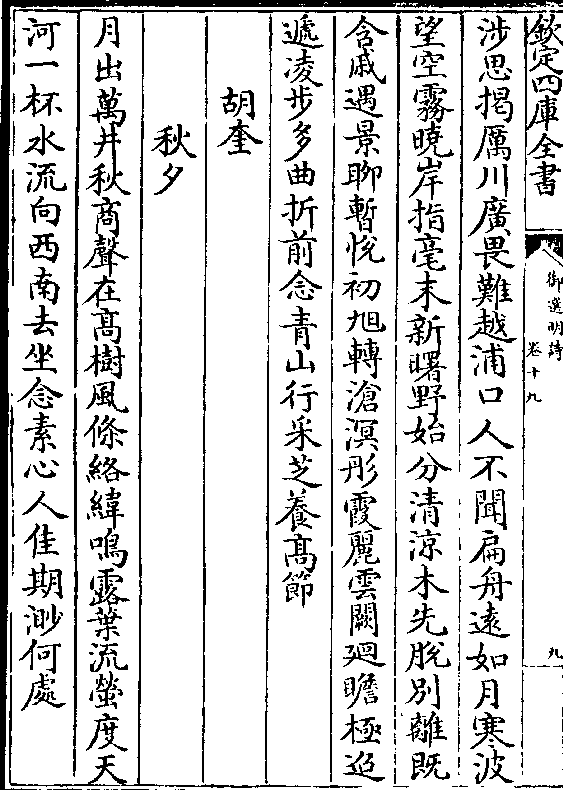 欽定四庫全書
御選明詩
卷十九
九
涉思揭厲川廣畏難越浦口人不聞扁舟遠如月寒波
望空霧曉岸指毫末新曙野始分清涼木先脫別離既
含戚遇景聊暫悅初旭轉滄溟彤霞麗雲闕迴瞻極迢
遞凌步多曲折前念青山行采芝養髙節
胡奎
秋夕
月出萬井秋商聲在髙樹風條絡緯鳴露葉流螢度天
河一杯水流向西南去坐念素心人佳期渺何處